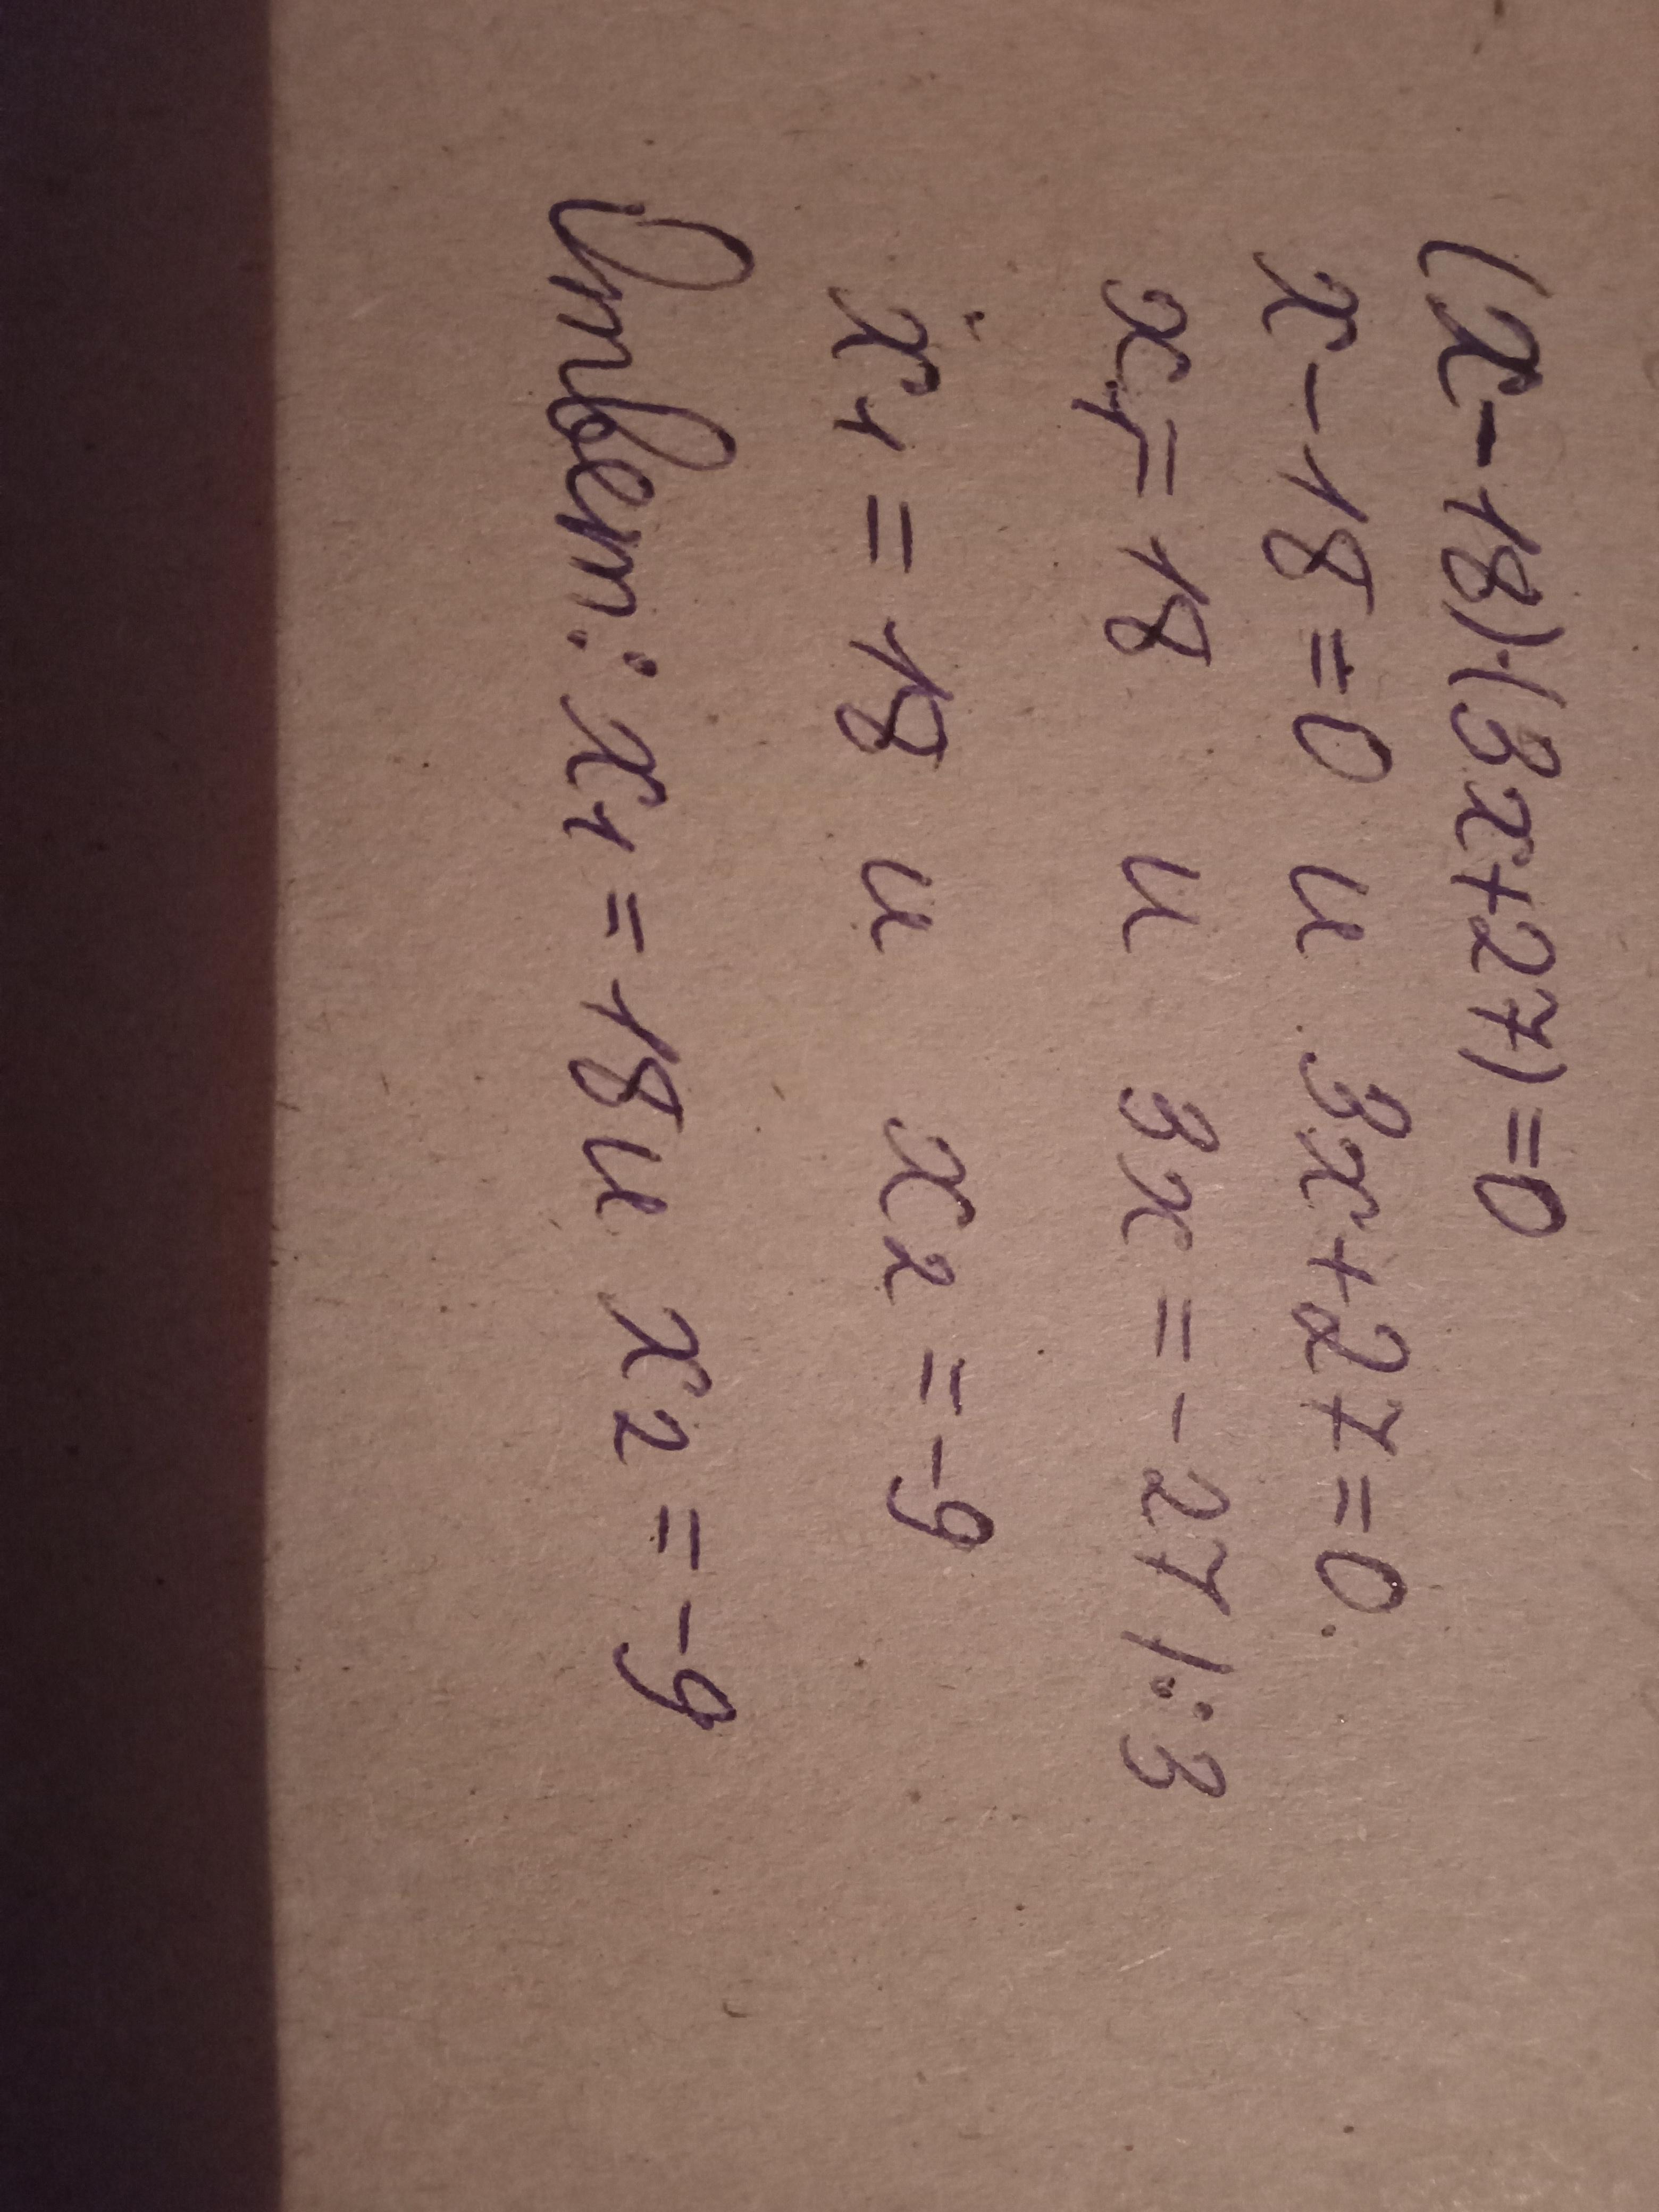 (x-18)·(3x+27)=0
x-18=0 и 3x+27=0.
x₁=18 и 3x=-27 |:3
x₁=18 и x₂=-9
Ответ: x₁=18 и x₂=-9